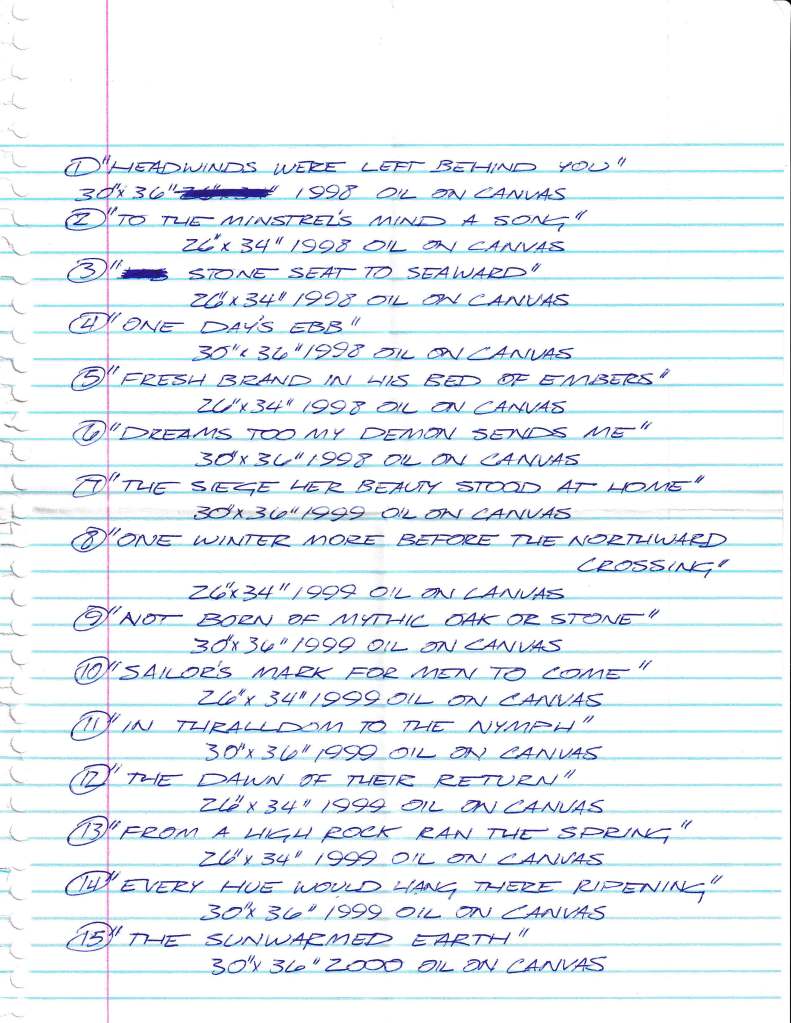 ① "HEADWINDS WERE LEFT BEHIND YOU"
30"x 36" 1998 OIL ON CANVAS
② "TO THE MINSTREL'S MIND A SONG"
26"x 34" 1998 OIL ON CANVAS
③ " STONE SEAT TO SEAWARD"
26"x 34" 1998 OIL ON CANVAS
④ "ONE DAY'S EBB"
30"x 36" 1998 OIL ON CANVAS
⑤ "FRESH BRAND IN HIS BED OF EMBERS"
26"x 34" 1998 OIL ON CANVAS
⑥ "DREAMS TOO MY DEMON SENDS ME"
30"x 36" 1998 OIL ON CANVAS
⑦ "THE SIEGE HER BEAUTY STOOD AT HOME"
30"x 36" 1999 OIL ON CANVAS
⑧ "ONE WINTER MORE BEFORE THE NORTHWARD
CROSSING"
26"x 34" 1999 OIL ON CANVAS
⑨ "NOT BORN OF MYTHIC OAK OR STONE"
30"x 36" 1999 OIL ON CANVAS
⑩ "SAILOR'S MARK FOR MEN TO COME"
26"x 34" 1999 OIL ON CANVAS
⑪ "IN THRALLDOM TO THE NYMPH"
30"x 36" 1999 OIL ON CANVAS
⑫ "THE DAWN OF THEIR RETURN"
26"x 34" 1999 OIL ON CANVAS
⑬ "FROM A HIGH ROCK RAN THE SPRING"
26"x 34" 1999 OIL ON CANVAS
⑭ "EVERY HUE WOULD HANG THERE RIPENING"
30"x 36" 1999 OIL ON CANVAS
⑮ "THE SUNWARMED EARTH"
30"x 36" 2000 OIL ON CANVAS